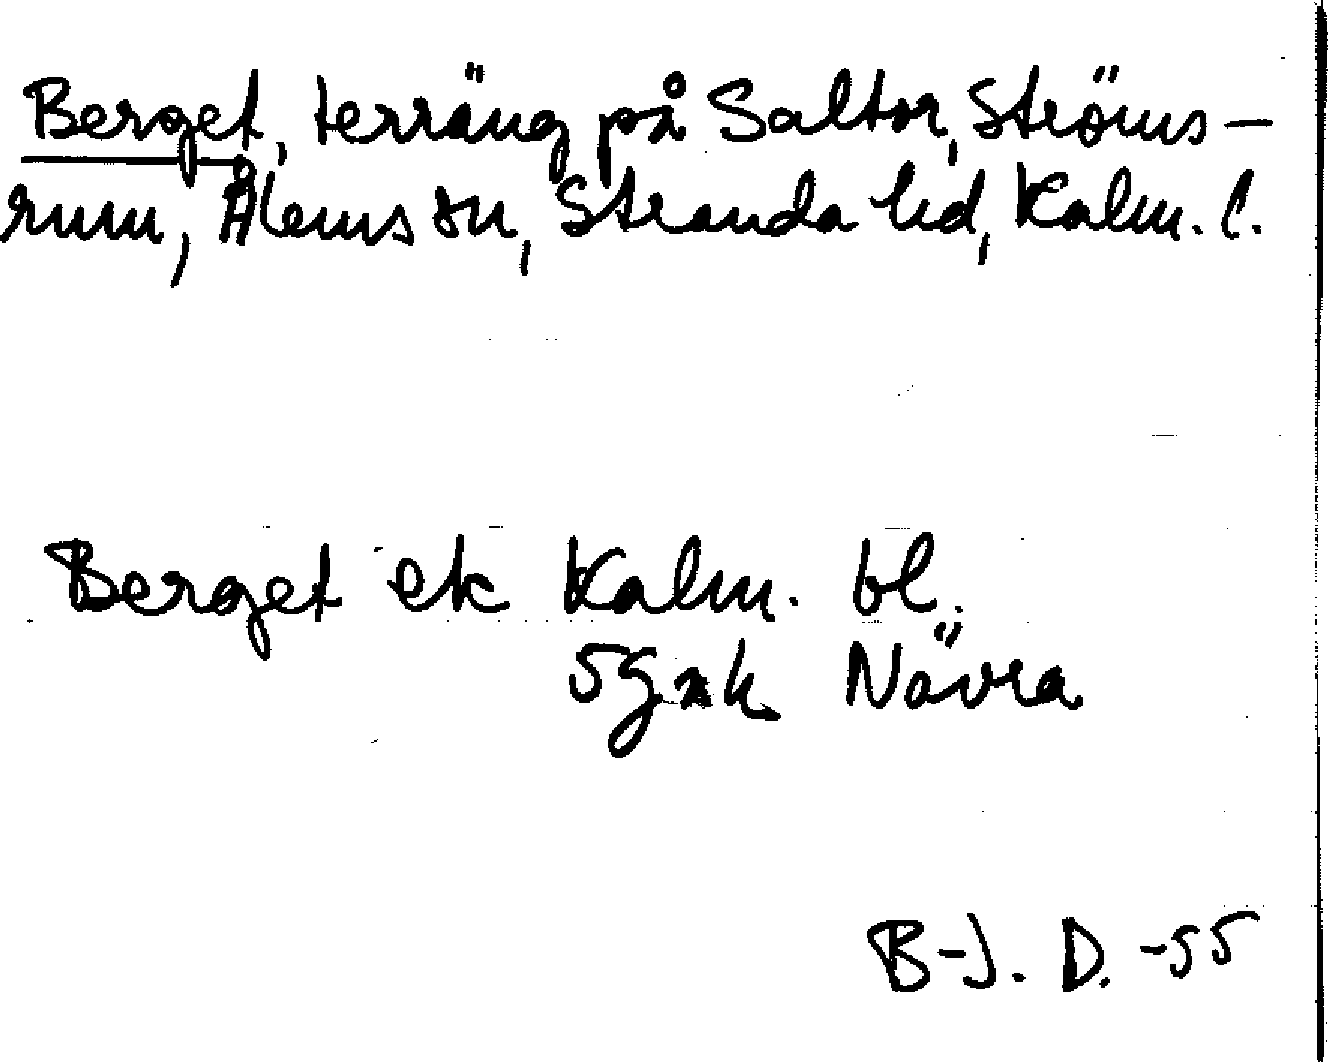 Berget, terräng på Saltor, Ströms-
rum, Ålems sn, Stranda hd, Kalm. l.
Berget ek Kalm. bl.
5G Nävra
B-J. D. -55